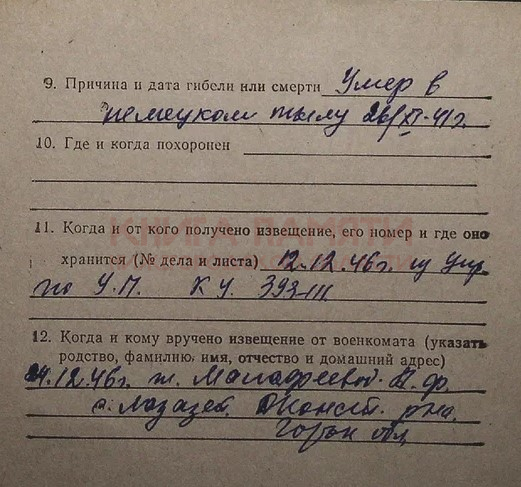 9. Причина и дата гибели или смерти Умер в
немецком тылу 26/XI-41г.
10. Где и когда похоронен
КНИГА ПАМЯТИ
11. Когда и от кого получено извещение, его номер и где оно
хранится (№ дела и листа) 12.12.46г. из Упр.
по У.П. К У. 393-III
12. Когда и кому вручено извещение от военкомата (указать
родство, фамилию, имя, отчество и домашний адрес)
24.12.46г. ж. Малафеевой
с. Лазазей, Д Конст. р-на.
Горьк обл